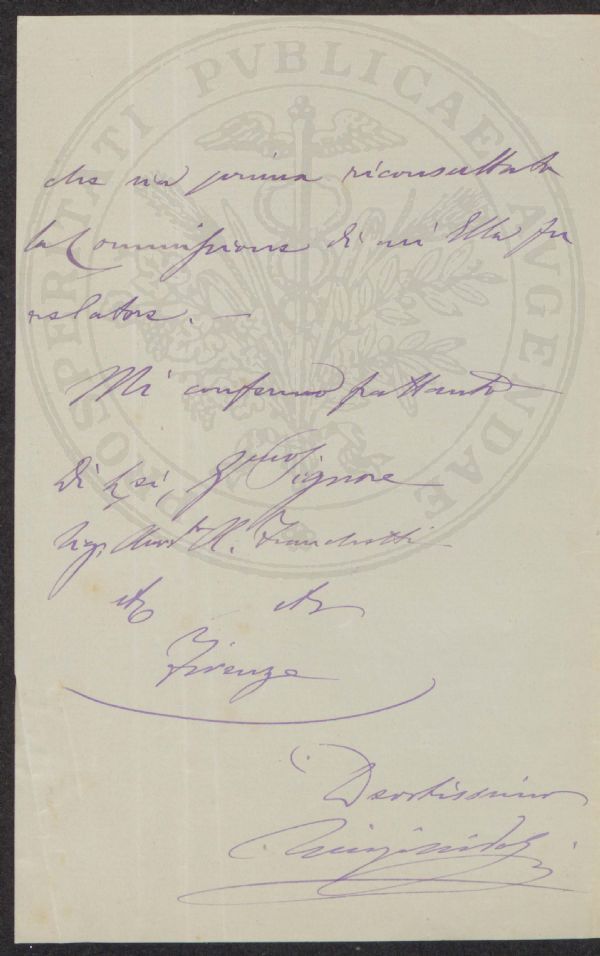 PROSPERITATI PVBLICAE AVGENDAE
che sia prima riconsultata
la Commissione di cui Ella fu
relatore. —
Mi confermo frattanto
Di Lei, Signore
A. Franchetti
Firenze
Devotissimo